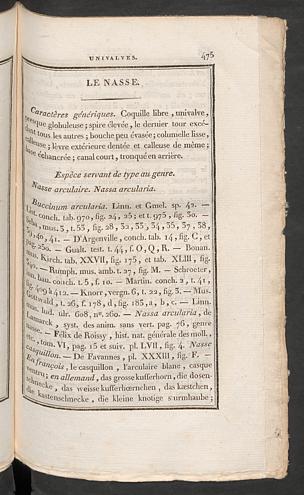 UNIVALVES. 475
LE NASSE.
Caractères génériques. Coquille libre, univalve,
presque globuleuse; spire élevée, le dernier tour excé-
dant tous les autres; bouche peu évasée; columelle lisse,
calleuse; lèvre extérieure dentée et calleuse de même;
base échancrée; canal court, tronqué en arrière.
Espèce servant de type au genre.
Nasse arculaire. Nassa arcularia.
Buccinum arcularia. Linn. et Gmel. sp. 42. —
List. conch. tab. 970, fig. 24, 25; et t. 975, fig. 30. —
mus. 3, t. 53, fig. 28, 32, 33, 34, 35, 37, 38,
40, 41. — D'Argenville, conch. tab. 14, fig. C, et
pag. 250. — Gualt. test. t. 44, f. O, Q, R. — Bonan.
mus. Kirch. tab. XXVII, fig. 175, et tab. XLIII, fig.
— Rumph. mus. amb. t. 27, fig. M. — Schroeter,
lau. conch. t. 5, f. 10. — Martin. conch. 2, t. 41,
fig. 409 à 412. — Knorr, vergn. 6, t. 22, fig. 3. — Mus.
Gottwald, t. 26, f. 178, d, fig. 183, a, b, c. — Linn.
mus. lud. ulr. 608, nº. 260. — Nassa arcularia, de
Lamarck, syst. des anim. sans vert. pag. 76, genre
nasse. — Félix de Roissy, hist. nat. générale des moll.,
etc., tom. VI, pag. 15 et suiv. pl. LVII, fig. 4. Nasse
casquillon. — De Favannes, pl. XXXIII, fig. F. —
En français, le casquillon, l'arculaire blanc, casque
ventru; en allemand, das grosse kufferhorn, die dosen-
schnecke, das weisse kufferhœrnchen, das kæstchen,
die kastenschnecke, die kleine knotige sturmhaube;